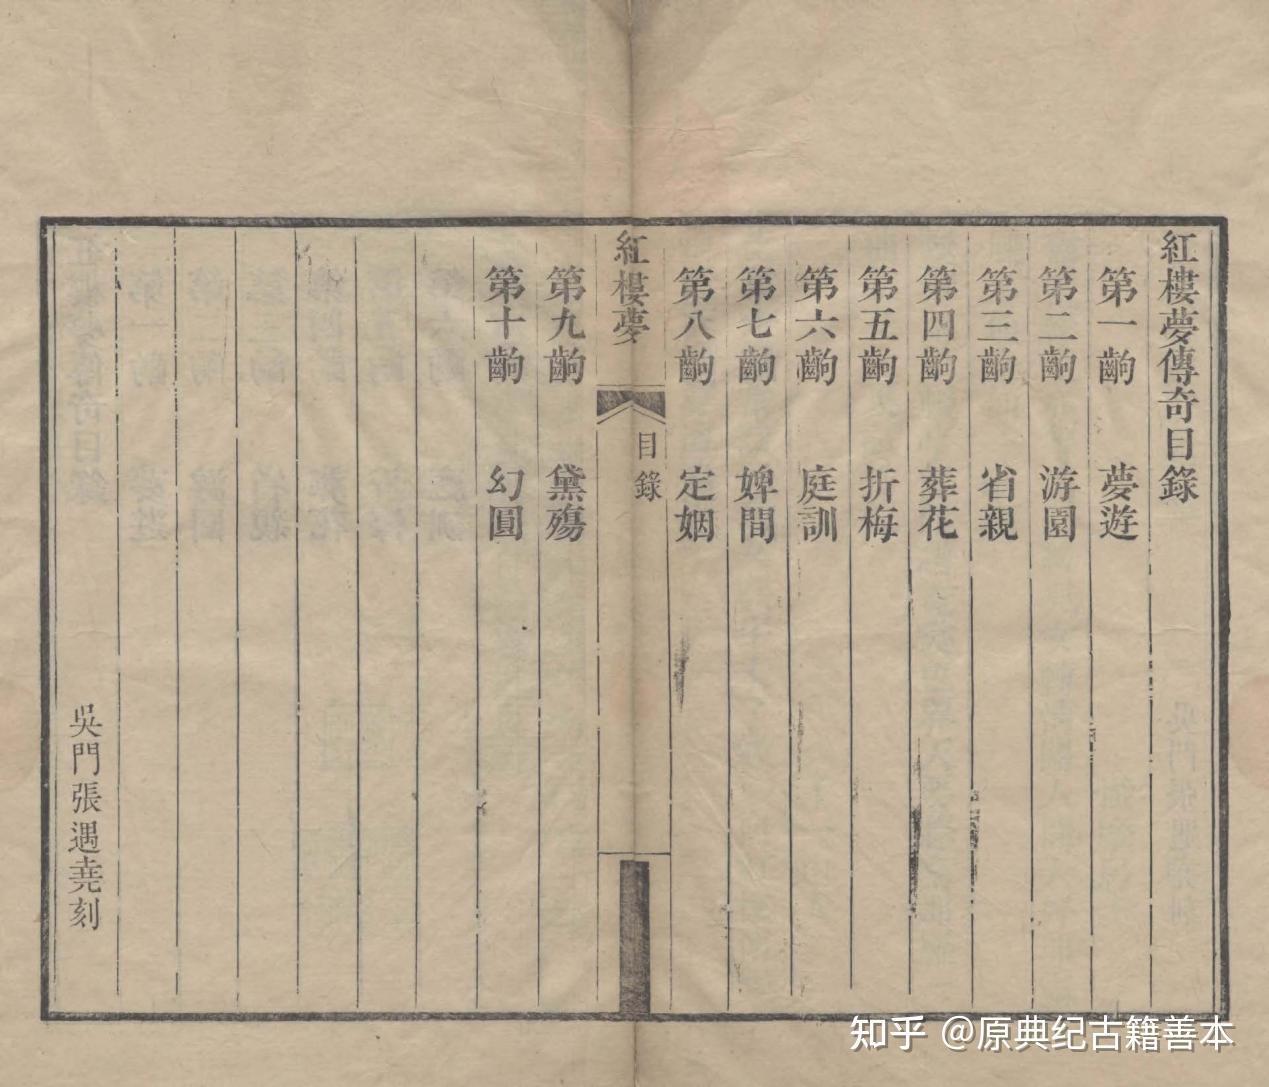 紅樓夢傳奇目錄
第一齣 夢遊
第二齣 游園
第三齣 省親
第四齣 葬花
第五齣 折梅
第六齣 庭訓
第七齣 婢間
第八齣 定姻
紅樓夢
目錄
第九齣 黛殤
第十齣 幻圓
吳門張遇堯刻
知乎 @原典纪古籍善本